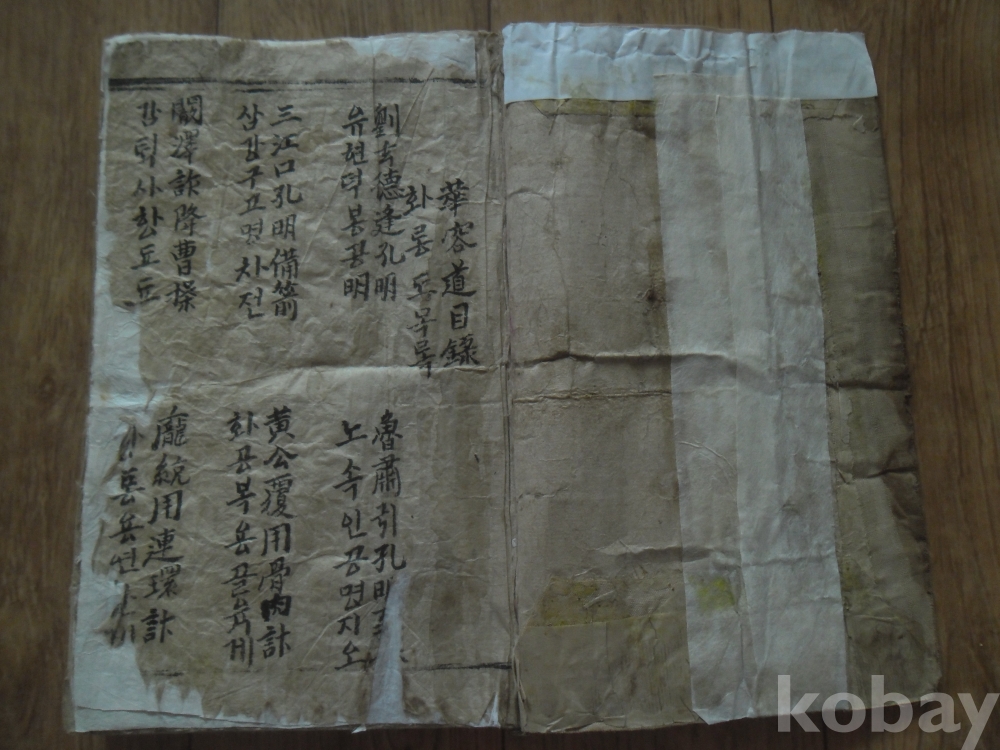 華容道目錄
화룡도목록
劉玄德逢孔明
유현덕봉공명
魯肅引孔明
노속인공명지오
三江口孔明備箭
삼강구고명차전
黃公覆用骨肉計
화공복욘골육계
闞澤詐降曹操
강턱사항됴됴
龐統用連環計
kobay